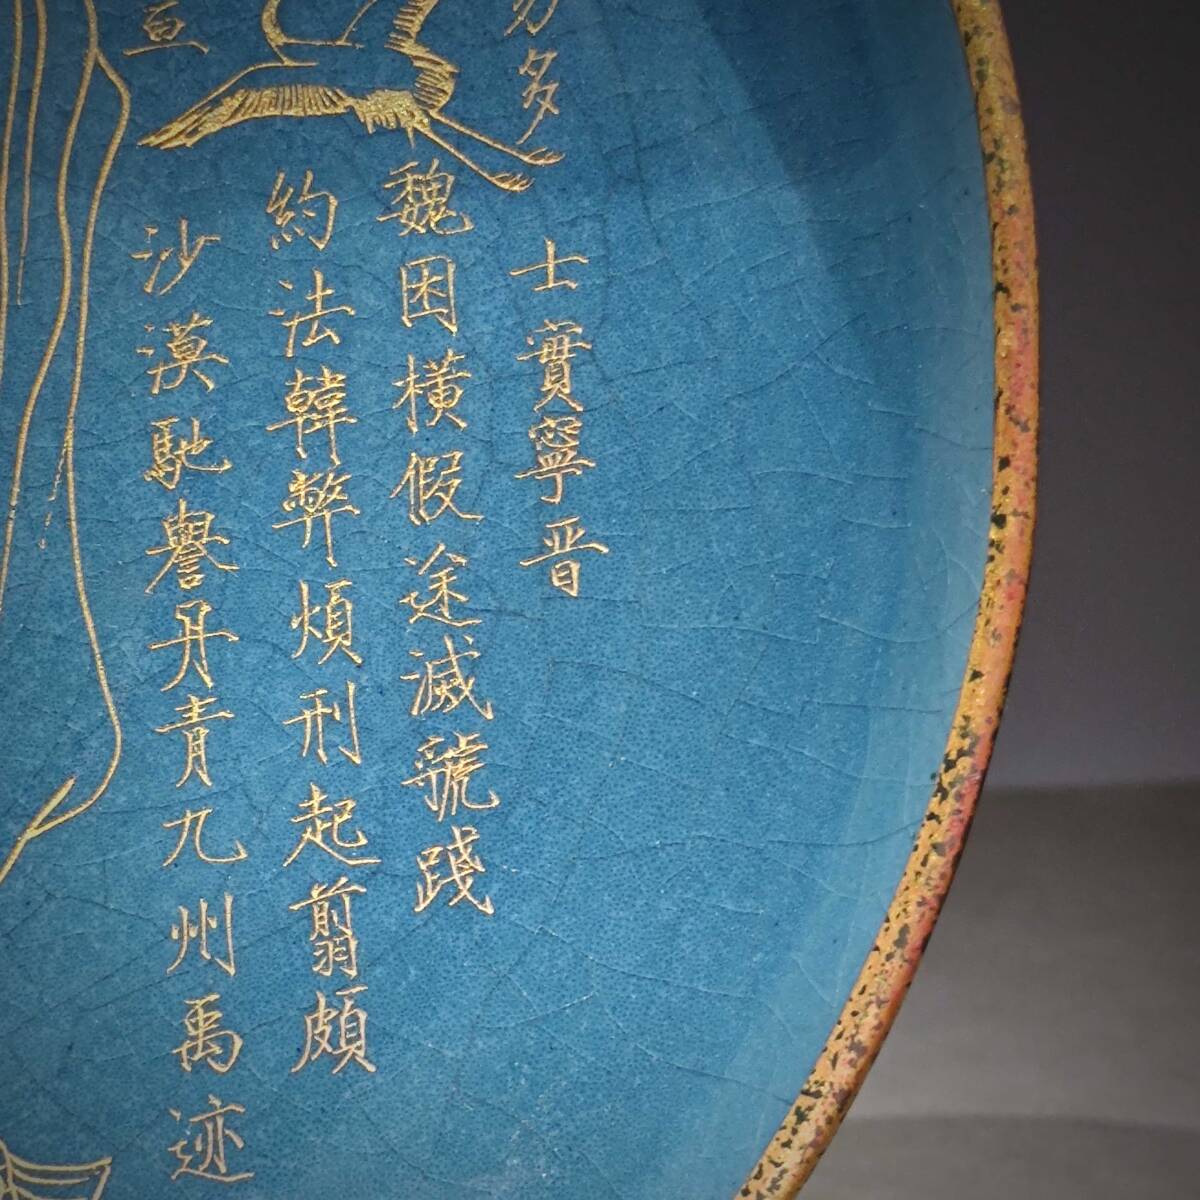 多
士實寧晉
魏困橫假途滅虢踐
約法韓弊煩刑起翦頗
宣
沙漠馳譽丹青九州禹迹